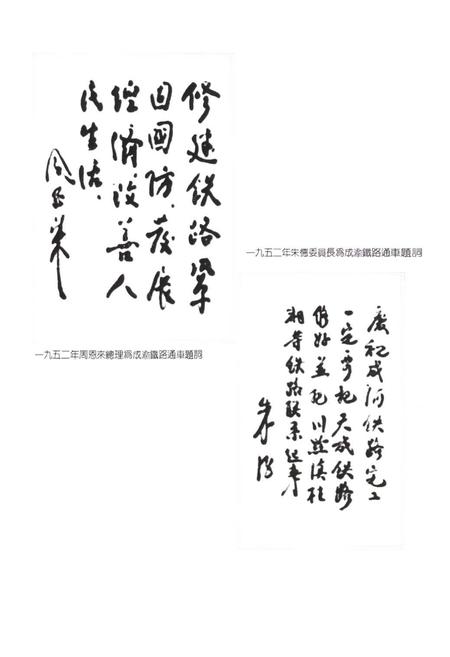 修建铁路鞏
固國防，发展
经濟，改善人
民生活、
周恩来
一九五二年周恩來總理爲成渝鐵路通車題詞
一九五二年朱德委員長爲成渝鐵路通車題詞
慶祝成渝铁路完工
一定要把天成铁路
修好並把川黔滇桂
湘等铁路联系起来
朱德